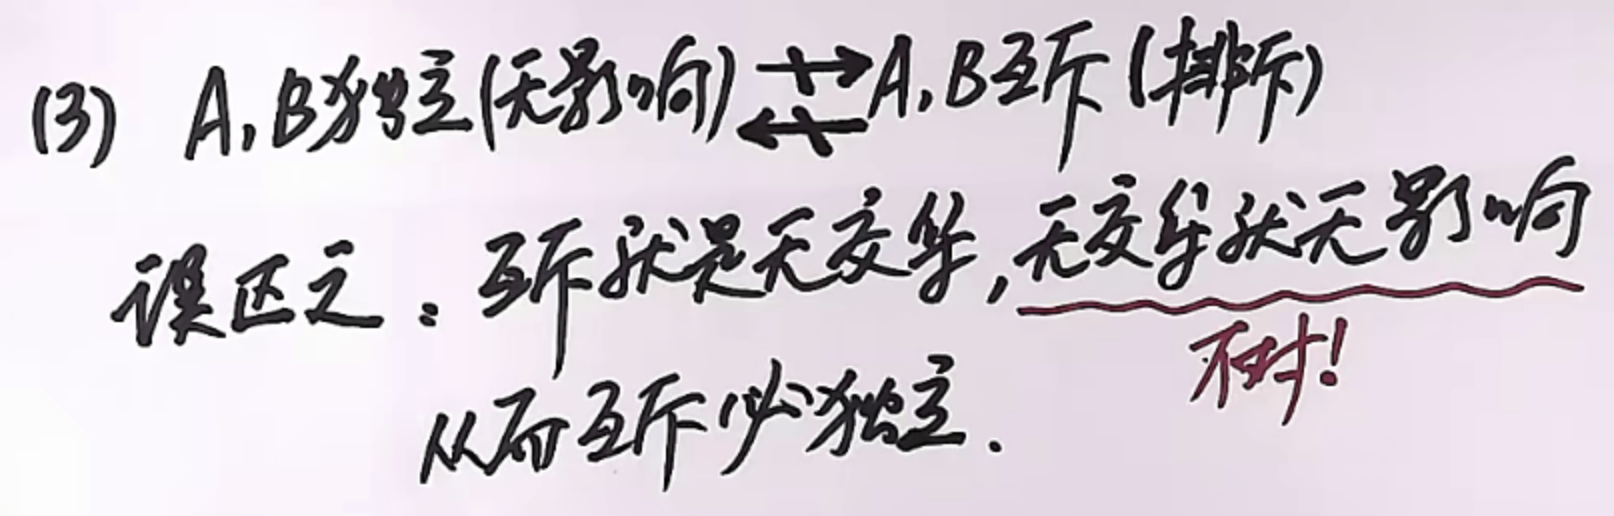 (3) A,B独立(无影响)⇄A,B互斥(排斥)
误区之:互斥就是无交集,无交集就无影响
不对!
从而互斥必独立.